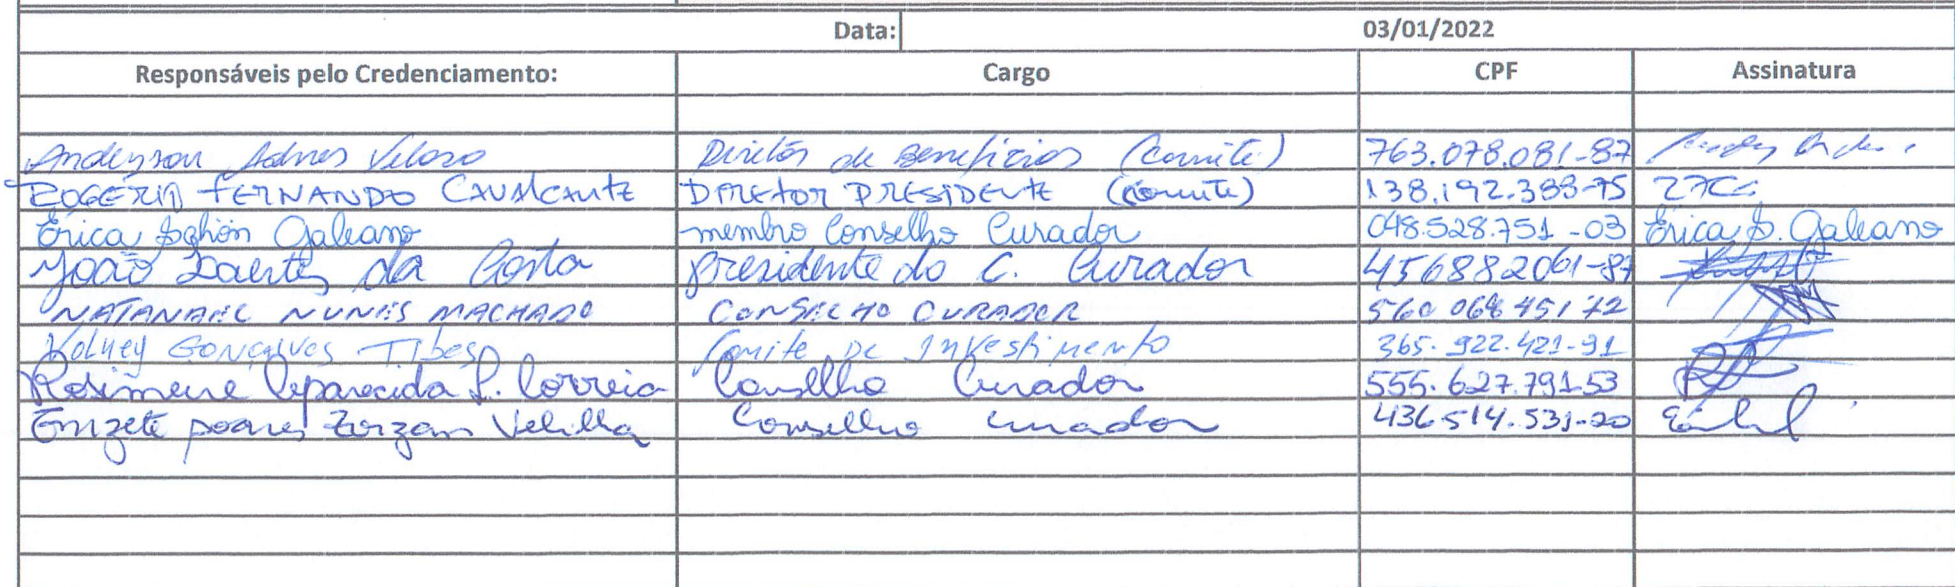 Data: 03/01/2022
Responsáveis pelo Credenciamento: Cargo CPF Assinatura
Anderson Adnes Velozo Diretor de Benefícios (comitê) 763.078.081-87
FERNANDO CAVALCANTE DIRETOR PRESIDENTE (comitê) 138.192.388-75
Érica Galeano membro Conselho Curador 048.528.751-03 Érica S. Galeano
João Laertes da Costa presidente do C. Curador 456882061-87
NATANAEL NUNES MACHADO CONSELHO CURADOR 560 068 451 72
Volney GONÇALVES TIBES Comite DE Investimento 365.922.421-91
Rosimeire Aparecida P. Correia Conselho Curador 555.627.791.53
Enizete soares Zorzan Velilha Conselho curador 436.514.531-20